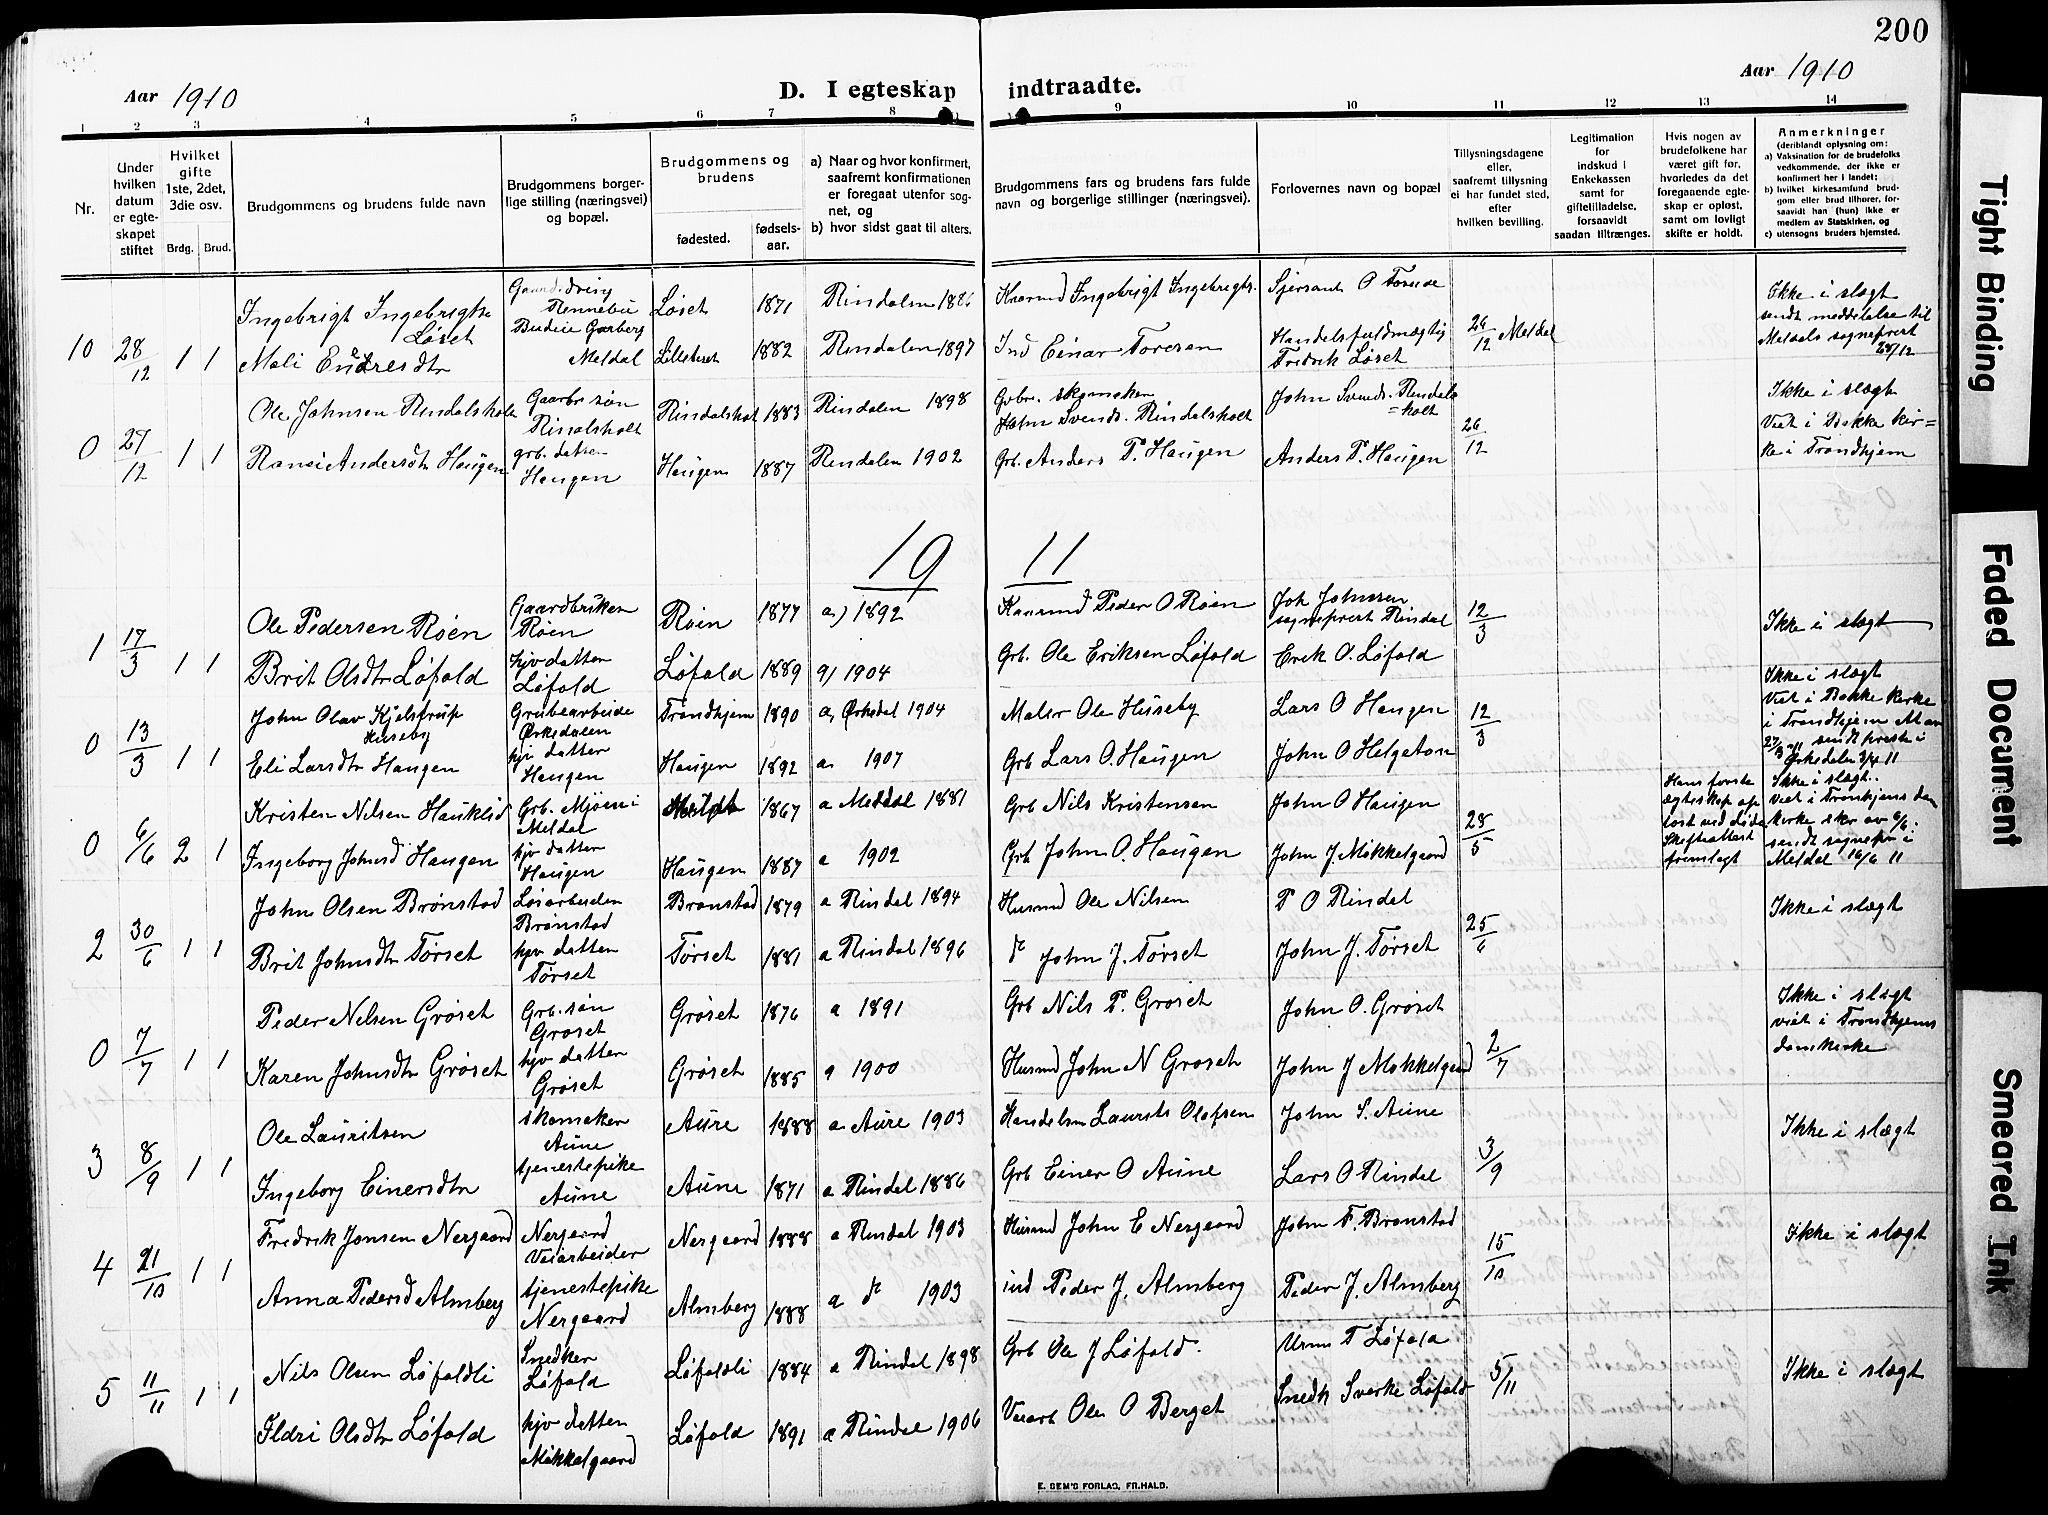 200
Aar 1910
D. I egteskap indtraadte.
Aar 1910
1 2 3 4 5 6 7 8 9 10 11 12 13 14
Nr.
Under hvilken datum er egteskapet stiftet
Hvilket gifte 1ste, 2det, 3die osv.
Brdg. Brud.
Brudgommens og brudens fulde navn
Brudgommens borgerlige stilling (næringsvei) og bopæl.
Brudgommens og brudens
fødested.
fødselsaar.
a) Naar og hvor konfirmert, saafremt konfirmationen er foregaat utenfor sognet, og
b) hvor sidst gaat til alters.
Brudgommens fars og brudens fars fulde navn og borgerlige stillinger (næringsvei).
Forlovernes navn og bopæl
Tillysningsdagene eller, saafremt tillysning ei har fundet sted, efter hvilken bevilling.
Legitimation for indskud i Enkekassen samt for giftetilladelse, forsaavidt saadan tiltrænges.
Hvis nogen av brudefolkene har været gift før, hvorledes da det foregaaende egteskap er opløst, samt om lovligt skifte er holdt.
Anmerkninger (deriblandt oplysning om:
a) Vaksination for de brudefolks vedkommende, der ikke er konfirmert her i landet;
b) hvilket kirkesamfund brudgom eller brud tilhører, forsaavidt han (hun) ikke er medlem av Statskirken, og
c) utensogns bruders hjemsted.
10 28/12 1 1
Ingebrigt Ingebrigts Løset
Rennebu
Løset 1871 Rindalen 1886
Ingebrigt Ingebrigts.
Mali Endresdtr
Budeie Garberg Meldal
1882 Rindalen 1897
Ind Einar Toresen
Handelsfuldmægtig Fredrik Løset
26/12 Meldal
Ikke i slægt
sendt meddelelse til
Meldals sogneprest
28/12
0 27/12 1 1
Ole Johnsen Rindalsholt
Gaarbr søn
Rindalsholt 1883 Rindalen 1898
Gvbr. skomaker
John Svends. Rindalsholt
John Svends. Rindalsholt
26/12
Ikke i slægt
Viet i Bakke kirke i Trondhjem
Andersdtr Haugen
grb. datter
Haugen
Haugen 1887 Rindalen 1902
Grb. Anders P. Haugen
Anders P. Haugen
19 11
1 17/3 1 1
Ole Pedersen Røen
Gaardbruker
Røen
Røen 1877 a) 1892
Peder O Røen
Joh Johnssen
sogneprest Rindal
12/3
Ikke i slægt
Brit Olsdtr Løfald
hjv datter
Løfald
Løfald 1889 a) 1904
Grb. Ole Eriksen Løfald
Erik O. Løfald
0 13/3 1 1
John Olav Kjelstrup Huseby
Grubearbeide
Ørkedalen
Trondhjem 1890 a, Ørkedal 1904
Maler Ole Huseby
Lars O Haugen
12/3
Ikke i slægt
Viet i Bakke Kirke
i Trondhjem
27/3 11 sendt prest i
Ørkedalen 3/4 11
Eli Larsdtr Haugen
hjv datter
Haugen
Haugen 1892 a. 1907
Grb Lars O. Haugen
John O Helgeton
0 6/6 2 1
Kristen Nilsen Hauklid
Grb. Mjøen i
Meldal
Meldal 1867 a Meldal 1881
Grb Nils Kristensen
John O Haugen
28/5
Hans første
ægteskap op
løst ved døde
Skifteattest
fremlagt
Ikke i slægt.
viet i Tronhjems dom
kirke skr av 6/6
sendt sognepr i
Meldal 16/6 11
Ingeborg Johnsd Haugen
hjv datter
Haugen
Haugen 1887 a 1902
Grb John O. Haugen
John J. Møkkelgaard
2 30/6 1 1
John Olsen Brønstad
Løsarbeider
Brønstad
Brønstad 1879 a Rindal 1894
Husmd Ole Nilsen
P O Rindal
25/6
Ikke i slægt
Brit Johnsdtr Tørset
hjv datter
Tørset
Tørset 1881 a Rindal 1896
John J. Tørset
John J. Tørset
0 7/7 1 1
Peder Nilsen Grøset
Grb. søn
Grøset
Grøset 1876 a 1891
Grb Nils P. Grøset
John O. Grøset
2/7
Ikke i slægt
viet i Trondhjems
domkirke
Karen Johnsdtr Grøset
hjv datter
Grøset
Grøset 1885 a 1900
Husmd John N Grøset
John J Møkkelgaard
3 8/9 1 1
Ole Lauritsen
skomaker
Aune
Aure 1888 a Aure 1903
Handelsm Laurits Olafsen
John S. Aune
3/9
Ikke i slægt
Ingeborg Einersdtr
tjenestepike
Aune
Aune 1871 a Rindal 1886
Grb Einer O Aune
Lars O Rindal
4 21/10 1 1
Fredrik Jonsen Nergaard
Nergaard
Veiarbeider
Nergaard 1888 a Rindal 1903
Husmd John E Nergaard
John F. Brønstad
15/10
Ikke i slægt
Anna Pedersd Almberg
tjenestepike
Nergaard
Almberg 1888 a 1903
ind Peder J. Almberg
Peder J. Almberg
5 11/11 1 1
Nils Olsen Løfaldli
Snedker
Løfald
Løfaldli 1884 a Rindal 1898
Grb Ole J Løfald.
T Løfald
5/11
Ikke i slægt
Ildri Olsdtr Løfald
hjv datter
Møkkelgaard
Løfald 1891 a Rindal 1906
Veiarb Ole O Berget
Snedk Sverke Løfald
E. SEM'S FORLAG, FR.HALD.
Tight Binding
Faded Document
Smeared Ink